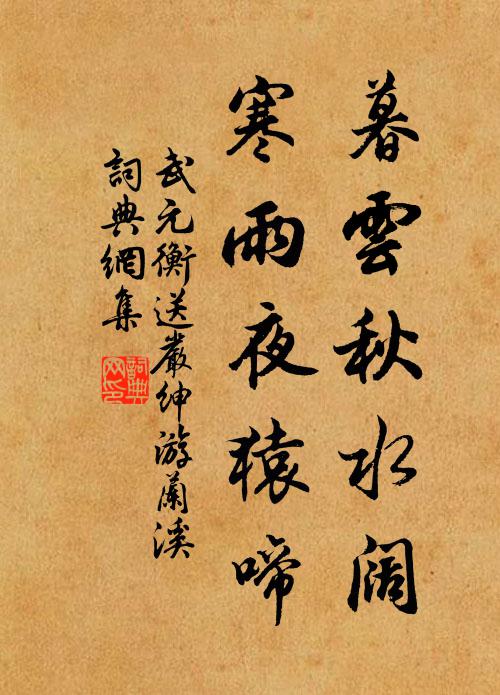 暮雲秋水闊
寒雨夜猿啼
武元衡送嚴紳游蘭溪
詞典網集
詞典网印